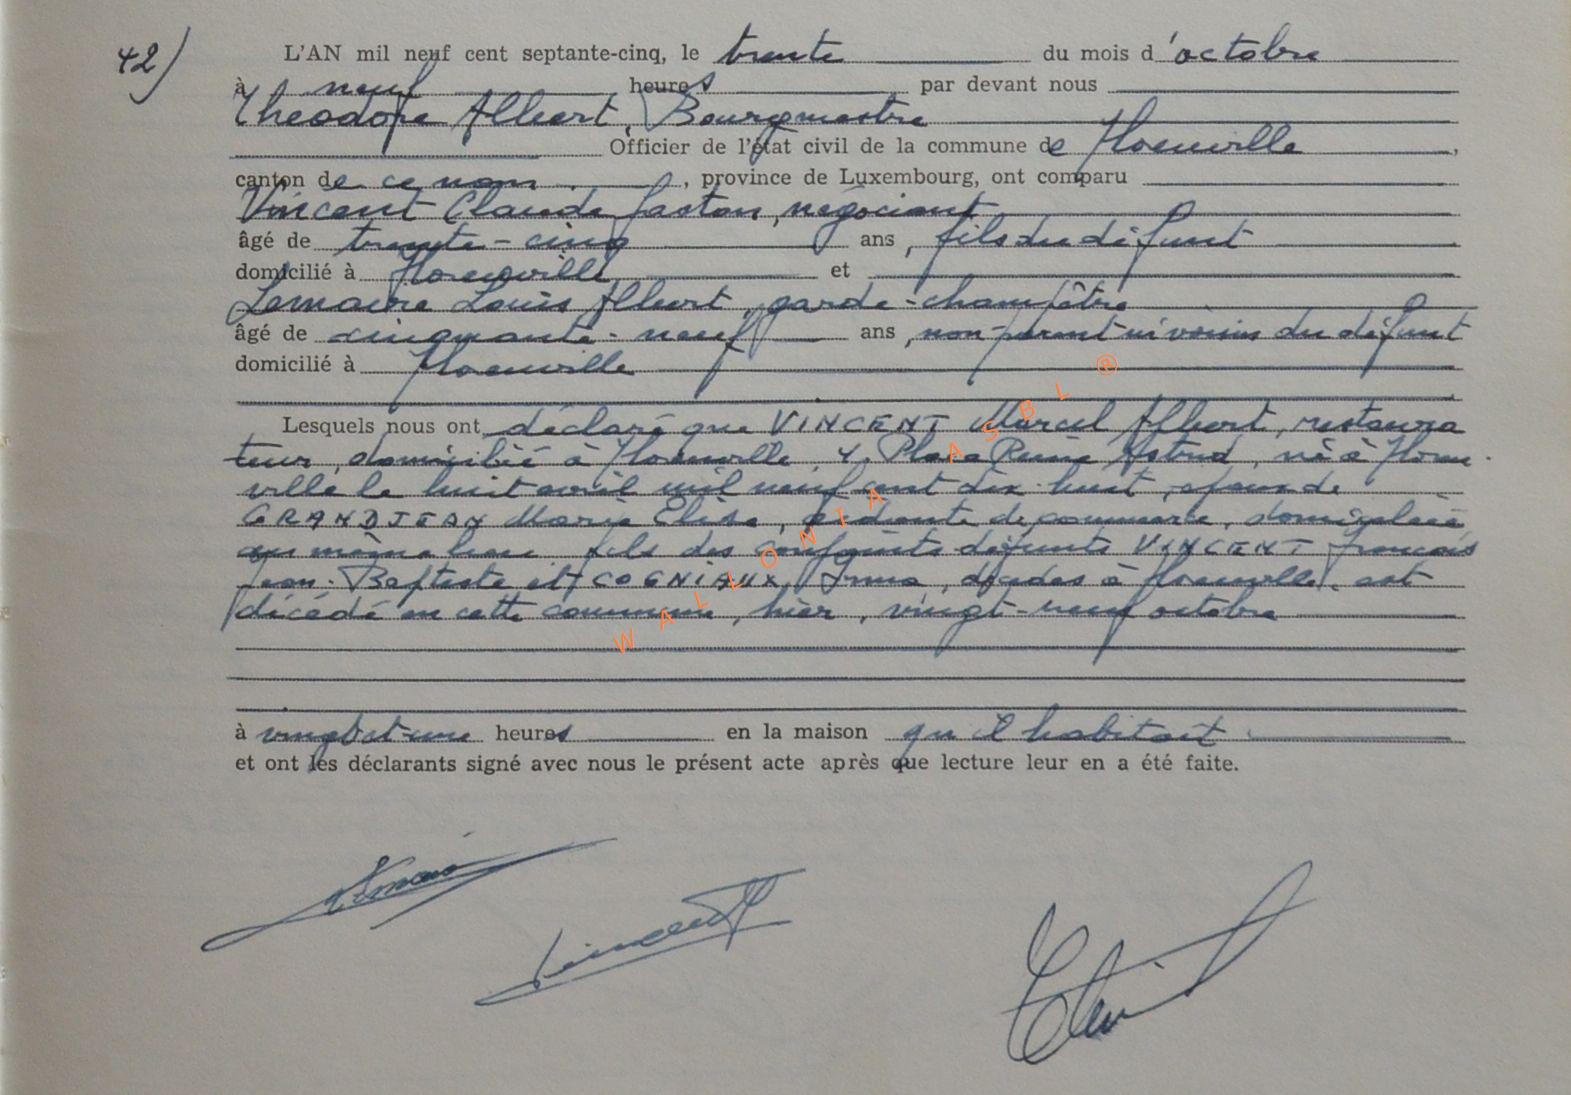 42) L'AN mil neuf cent septante-cinq, le trente du mois d'octobre
à neuf heures par devant nous
Théodore Albert, Bourgmestre
Officier de l'état civil de la commune de Florenville,
canton de ce nom, province de Luxembourg, ont comparu
Vincent Claude Gaston, négociant
âgé de trente-cinq ans, fils du défunt
domicilié à Florenville et
Lemaire Louis Albert, garde-champêtre
âgé de cinquante-neuf ans, non parent ni voisin du défunt
domicilié à Florenville
Lesquels nous ont déclaré que VINCENT Marcel Albert, restaura
teur, domicilié à Florenville, Place Reine Astrid, né à Floren-
ville le huit avril mil neuf cent dix-huit, époux de
GRANDJEAN Marie Elise, gérante de commerce, domiciliée
au même lieu fils des conjoints défunts VINCENT François
Jean-Baptiste et COGNIAUX Irma, décédés à Florenville, est
décédé en cette commune, hier, vingt-neuf octobre
à vingt-et-une heures en la maison qu'il habitait
et ont les déclarants signé avec nous le présent acte après que lecture leur en a été faite.
Vincent
WALLONIA ASBL ®